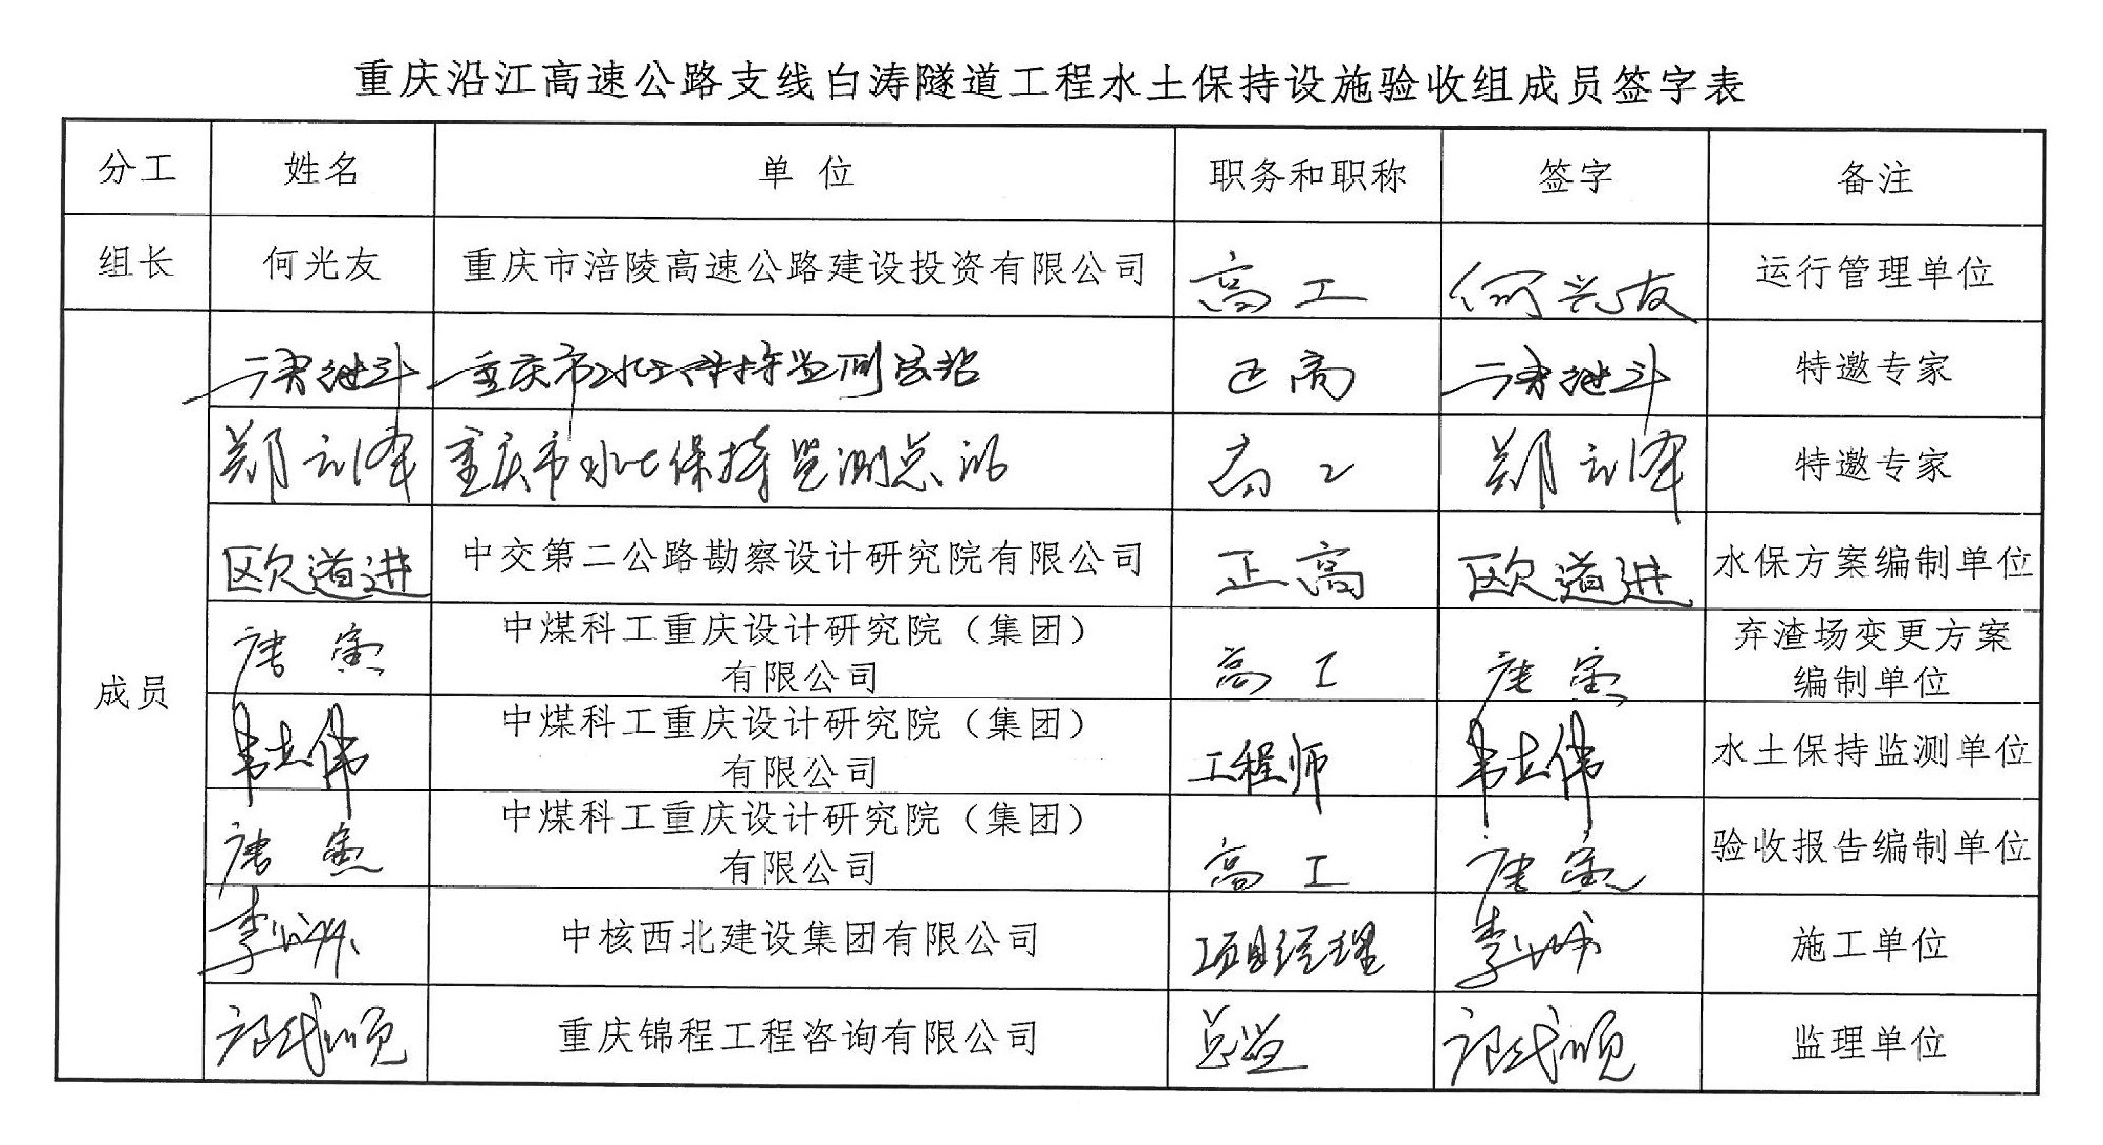 重庆沿江高速公路支线白涛隧道工程水土保持设施验收组成员签字表
分工 姓名 单 位 职务和职称 签字 备注
组长 何光友 重庆市涪陵高速公路建设投资有限公司 高工 何光友 运行管理单位
成员
重庆市水土保持监测总站 正高 特邀专家
郑云泽 重庆市水土保持监测总站 高工 郑云泽 特邀专家
欧道进 中交第二公路勘察设计研究院有限公司 正高 欧道进 水保方案编制单位
唐寓 中煤科工重庆设计研究院（集团） 高工 唐寓 弃渣场变更方案
有限公司 编制单位
韦立伟 中煤科工重庆设计研究院（集团） 工程师 韦立伟 水土保持监测单位
有限公司
唐寓 中煤科工重庆设计研究院（集团） 高工 唐寓 验收报告编制单位
有限公司
李 中核西北建设集团有限公司 项目经理 李 施工单位
重庆锦程工程咨询有限公司 总监 监理单位